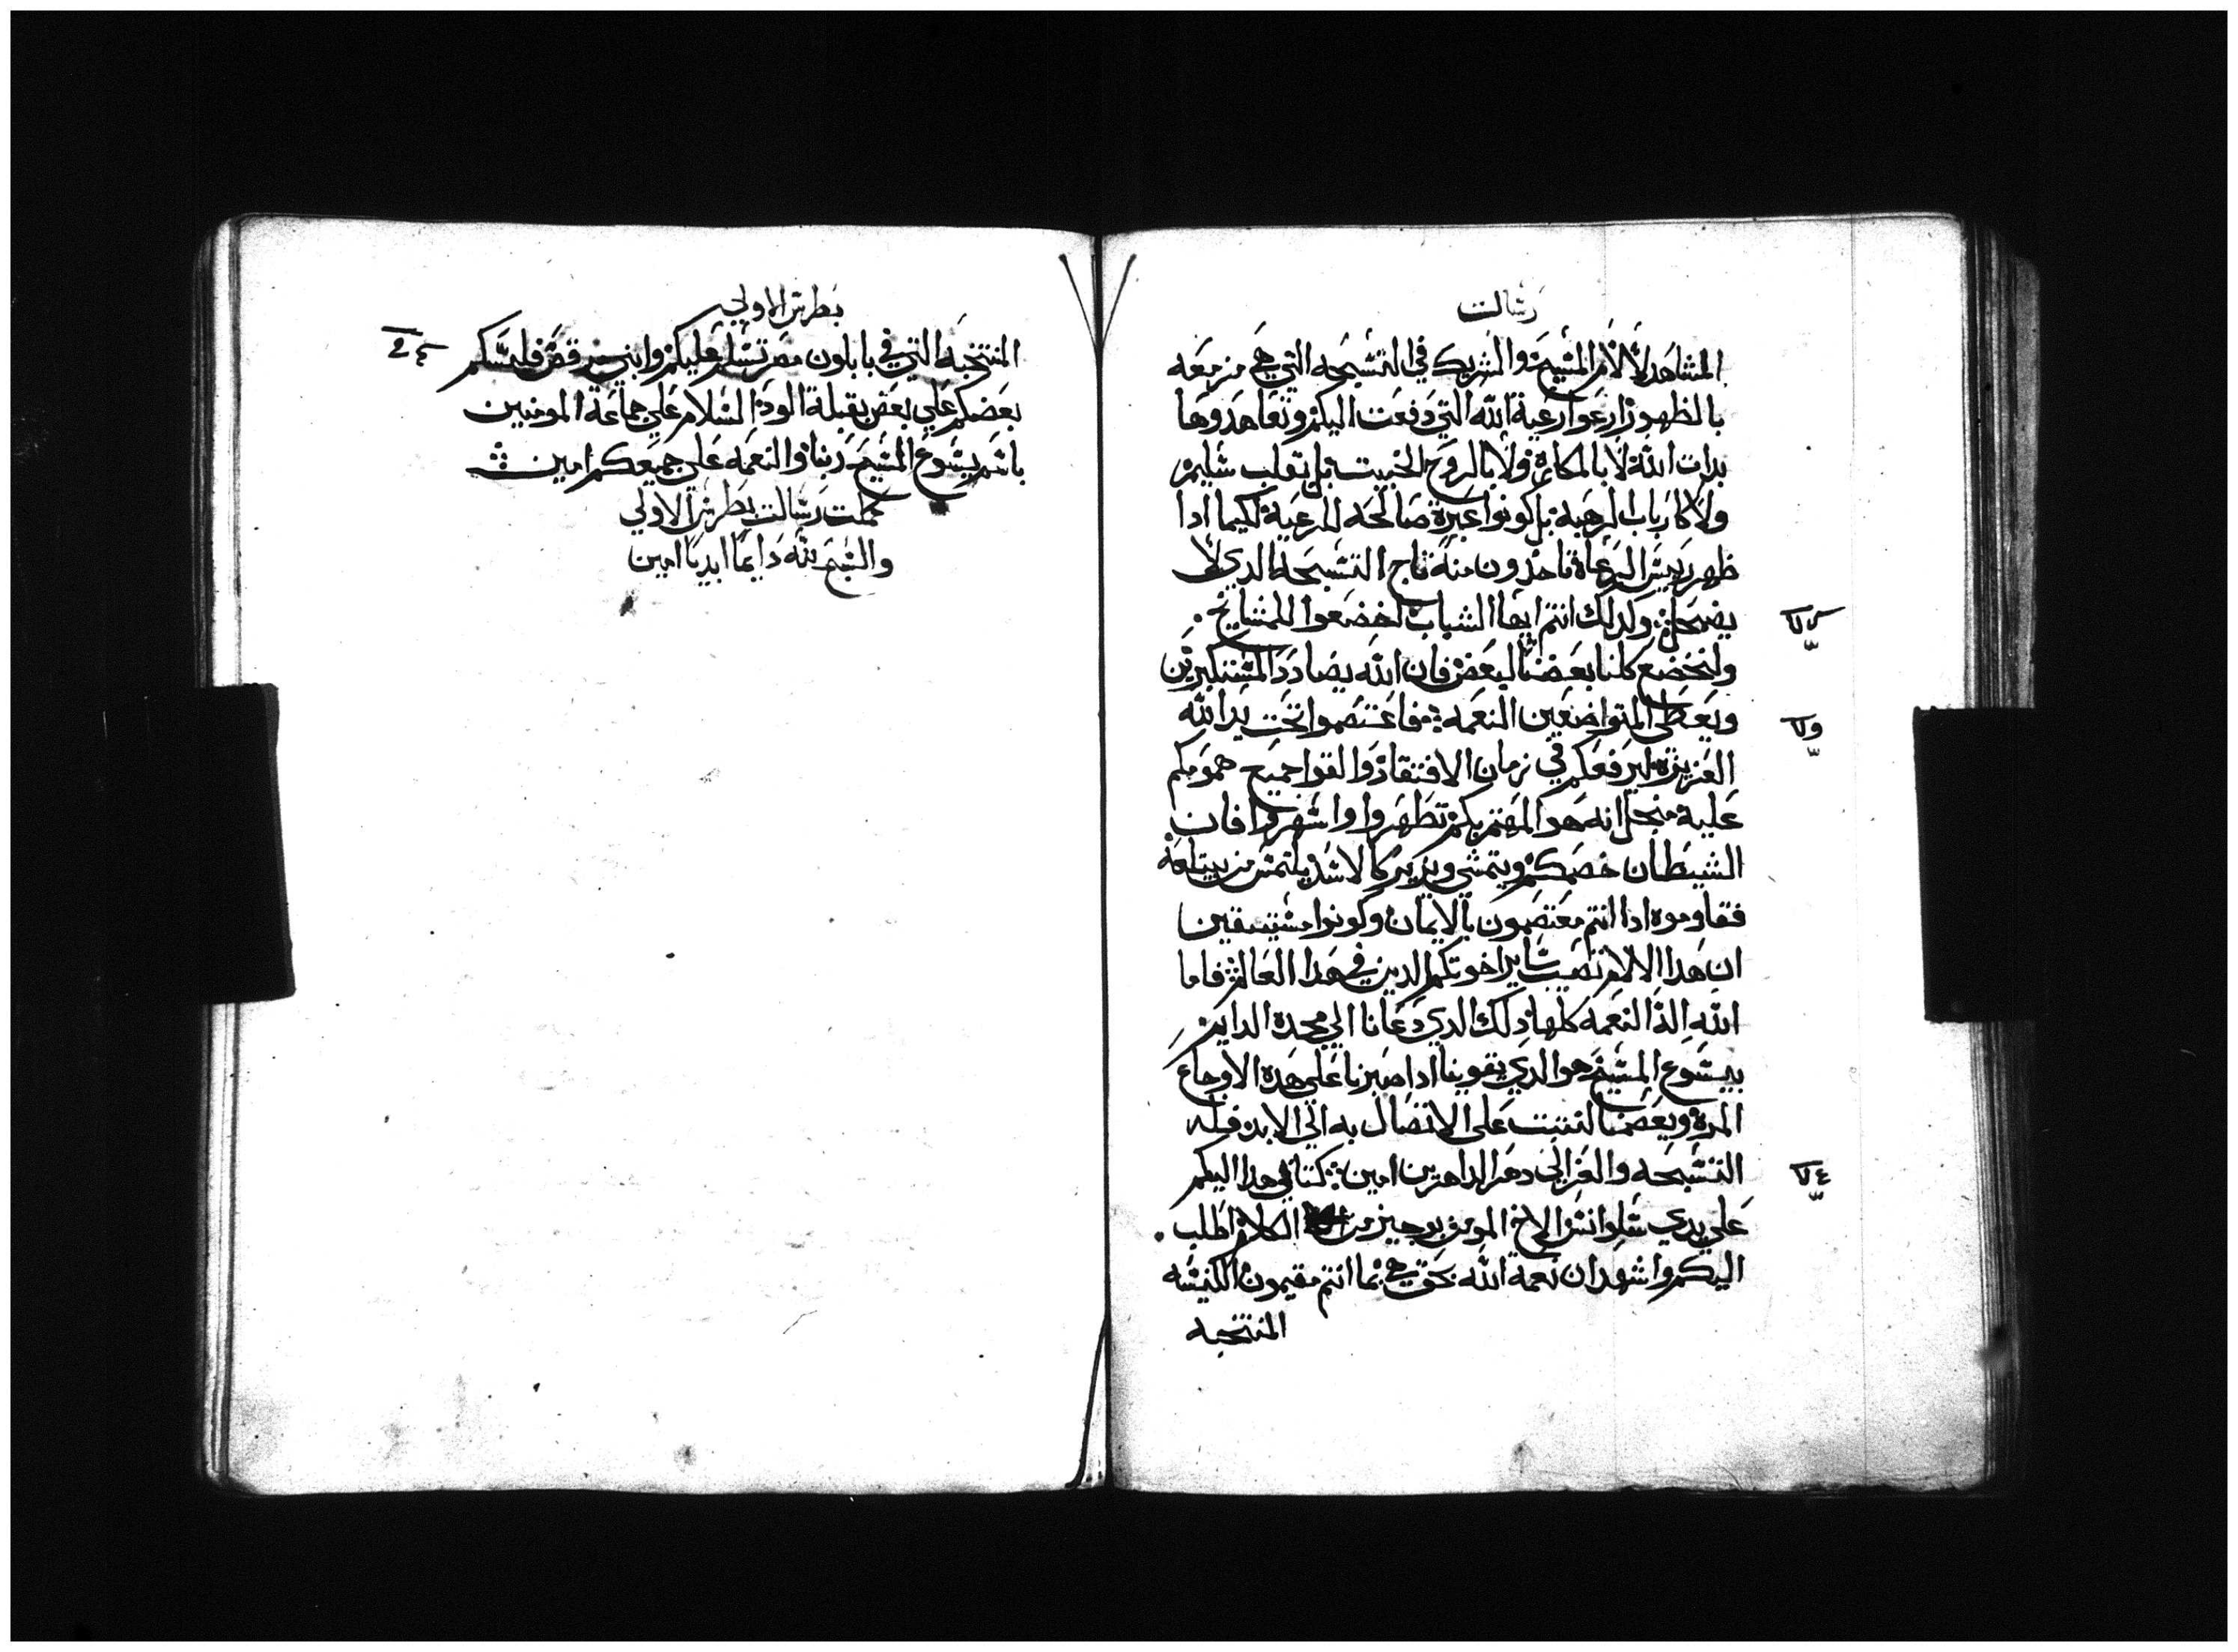 رسالت
المشاهد لالام المسيح والشريك في التسبحه التي هي مزمعه
بالظهور ارعوا رعية الله التي دفعت اليكم وتعاهدوها
بدات الله لا بالمكاره ولا بالروح الخبيت بل بقلب سليم
ولا كارباب الرعيه بل كونوا عبرة صالحه للرعية لكيما ادا
ظهر رييس الرعاة تاخدون منه تاج التسبحه الدي لا
يضمحل ولدلك انتم ايها الشباب اخضعوا للمشايخ
ولنخضع كلنا بعضنا لبعض فان الله يضادد المستكبرين
ويعطي المتواضعين النعمه فاعتصموا تحت يد الله
العزيزه ليرفعكم في زمان الافتقاد والقوا جميع همومكم
عليه منجل انه هو المهتم بكم تطهروا واسهروا فان
الشيطان خصمكم ويتمشي ويزير كالاسد يلتمس من يبتلعه
فقاوموه ادا انتم معتصمون بالايمان وكونوا مستيقنين
ان هدا الالام تصيب ساير اخوتكم الدين في هدا العالم فاما
الله اله النعمه كلها دلك الدي دعانا الي مجده الدايم
بيسوع المسيح هو الدي يقوينا ادا صبرنا علي هده الاوجاع
المرة ويعصمنا لنتبت علي الاتصال به الي الابد فله
التسبحه والعز الي دهر الداهرين امين كتابي هدا اليكم
علي يدي سلوانس الاخ المومن بوجيز من الكلام اطلب
اليكم واشهد ان نعمة الله بحق هي بما انتم مقيمون الكنيسه
المنتخبه
بطرس الاولي
المنتخبه التي في بابلون مصر تسلم عليكم وابني مرقص فليسلم
بعضكم علي بعض بقبلة الود السلام علي جماعة المومنين
باسم يسوع المسيح ربنا والنعمه علي جميعكم امين
كملت رسالت بطرس الاولي
والسبح لله دايما ابديا امين